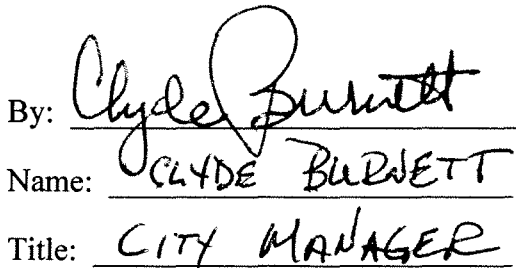 By: Clyde Burnett
Name: CLYDE BURNETT
Title: CITY MANAGER